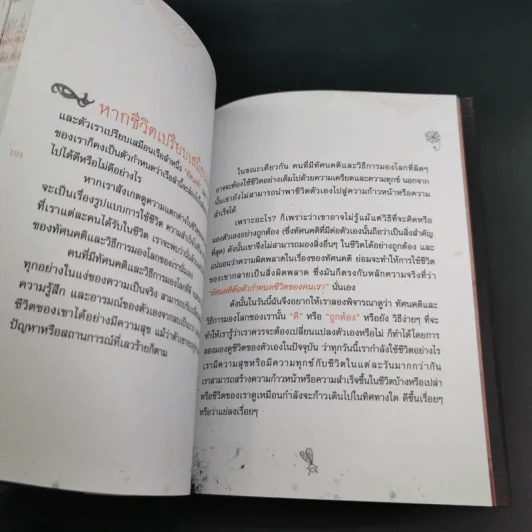 หากชีวิตเปรียบเสมือน
และตัวเราเปรียบเสมือนเรือลำหนึ่ง
ของเราก็คงเป็นตัวกำหนดว่าเรือลำนี้จะ
ไปได้ดีหรือไม่อย่างไร
หากเราสังเกตดูความแตกต่าง
จะเป็นเรื่องรูปแบบการใช้ชีวิต ความสำเร็จ
ที่เราแต่ละคนได้รับในชีวิต เราจะพบว่านั่น
ของทัศนคติและวิธีการมองโลกของเรานั่นเอง
คนที่มีทัศนคติและวิธีการมองโลกที่ดี
ทุกอย่างในแง่ของความเป็นจริง สามารถ
ความรู้สึก และอารมณ์ของตัวเอง
ชีวิตของเขาได้อย่างมีความสุข แม้ว่า
ปัญหาหรือสถานการณ์ที่เลวร้ายก็ตาม
194
ในขณะเดียวกัน คนที่มีทัศนคติและวิธีการมองโลกที่ผิดๆ
อาจจะต้องใช้ชีวิตอย่างเต็มไปด้วยความเครียดและความทุกข์ นอกจาก
นั้นเขายังไม่สามารถนำพาชีวิตตัวเองไปสู่ความก้าวหน้าหรือความ
สำเร็จได้
เพราะอะไร? ก็เพราะว่าเขาอาจไม่รู้แม้แต่วิธีที่จะคิดหรือ
มองตัวเองอย่างถูกต้อง (ซึ่งทัศนคติที่มีต่อตัวเองนั้นถือว่าเป็นสิ่งสำคัญ
ที่สุด) ดังนั้นเขาจึงไม่สามารถมองสิ่งอื่นๆ ในชีวิตได้อย่างถูกต้อง และ
แน่นอนว่าความผิดพลาดในเรื่องของทัศนคติ ย่อมจะทำให้การใช้ชีวิต
ของเขากลายเป็นสิ่งผิดพลาด ซึ่งมันก็ตรงกับหลักความจริงที่ว่า
"ทัศนคติคือตัวกำหนดชีวิตของคนเรา" นั่นเอง
ดังนั้นในวันนี้ฉันจึงอยากให้เราลองพิจารณาดูว่า ทัศนคติและ
วิธีการมองโลกของเรานั้น "ดี" หรือ "ถูกต้อง" หรือยัง วิธีง่ายๆ ที่จะ
ทำให้เรารู้ว่าเราควรจะต้องเปลี่ยนแปลงตัวเองหรือไม่ ก็ทำได้โดยการ
ลองมองดูชีวิตของตัวเองในปัจจุบัน ว่าทุกวันนี้เรากำลังใช้ชีวิตอย่างไร
เรามีความสุขหรือมีความทุกข์กับชีวิตในแต่ละวันมากกว่ากัน
เราสามารถสร้างความก้าวหน้าหรือความสำเร็จขึ้นในชีวิตบ้างหรือเปล่า
หรือชีวิตของเราดูเหมือนกำลังจะก้าวเดินไปในทิศทางใด ดีขึ้นเรื่อยๆ
หรือว่าแย่ลงเรื่อยๆ